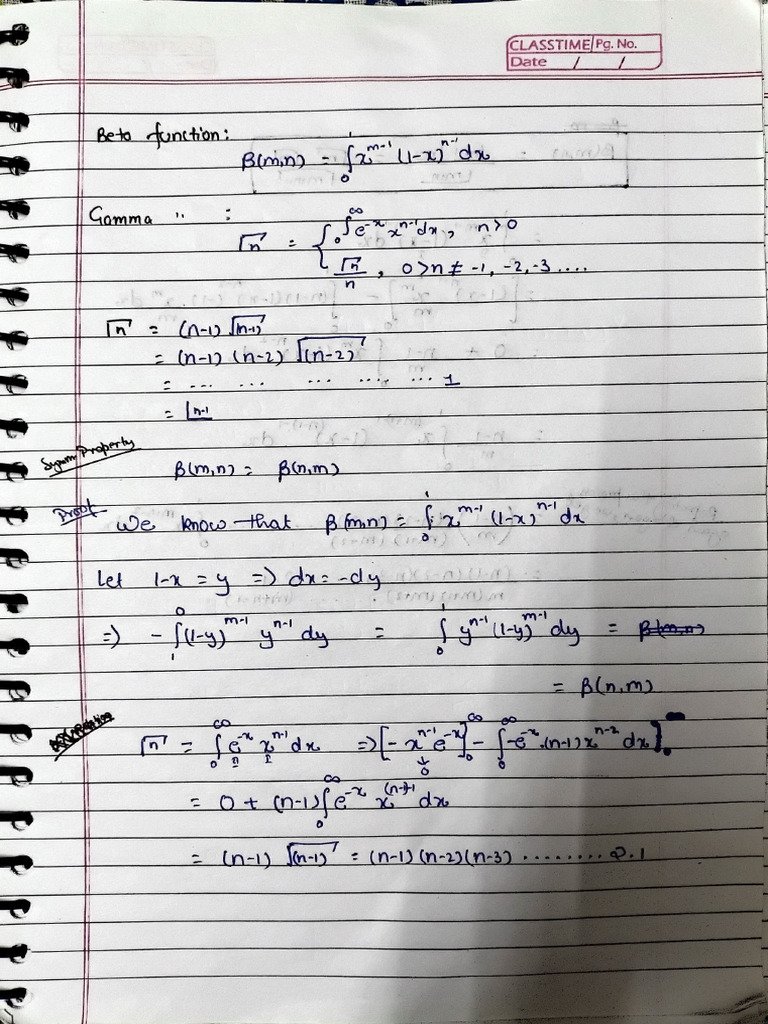 CLASSTIME Pg. No.
Date / /
Beta function:
β(m,n) = ∫₀¹ x^(m-1) (1-x)^(n-1) dx
Gamma " :
Γn = { ₀∫^∞ e^(-x) x^(n-1) dx, n>0
Γn / n , 0>n ≠ -1, -2, -3 ....
Γn = (n-1) Γ(n-1)
= (n-1) (n-2) Γ(n-2)
= .... .... .... .... .... 1
= ⌊n-1
Symm Property
β(m,n) = β(n,m)
Proof We know that β(m,n) = ∫₀¹ x^(m-1) (1-x)^(n-1) dx
Let 1-x = y => dx = -dy
=> - ∫₁⁰ (1-y)^(m-1) y^(n-1) dy = ∫₀¹ y^(n-1) (1-y)^(m-1) dy = β(m,n)
= β(n,m)
Γn = ₀∫^∞ e^(-x) x^(n-1) dx => [- x^(n-1) e^(-x)]₀^∞ - ∫₀^∞ -e^(-x) .(n-1) x^(n-2) dx]
II I ↓ 0
= 0 + (n-1) ∫₀^∞ e^(-x) x^((n-1)-1) dx
= (n-1) Γ(n-1) = (n-1) (n-2) (n-3) ......... 2.1